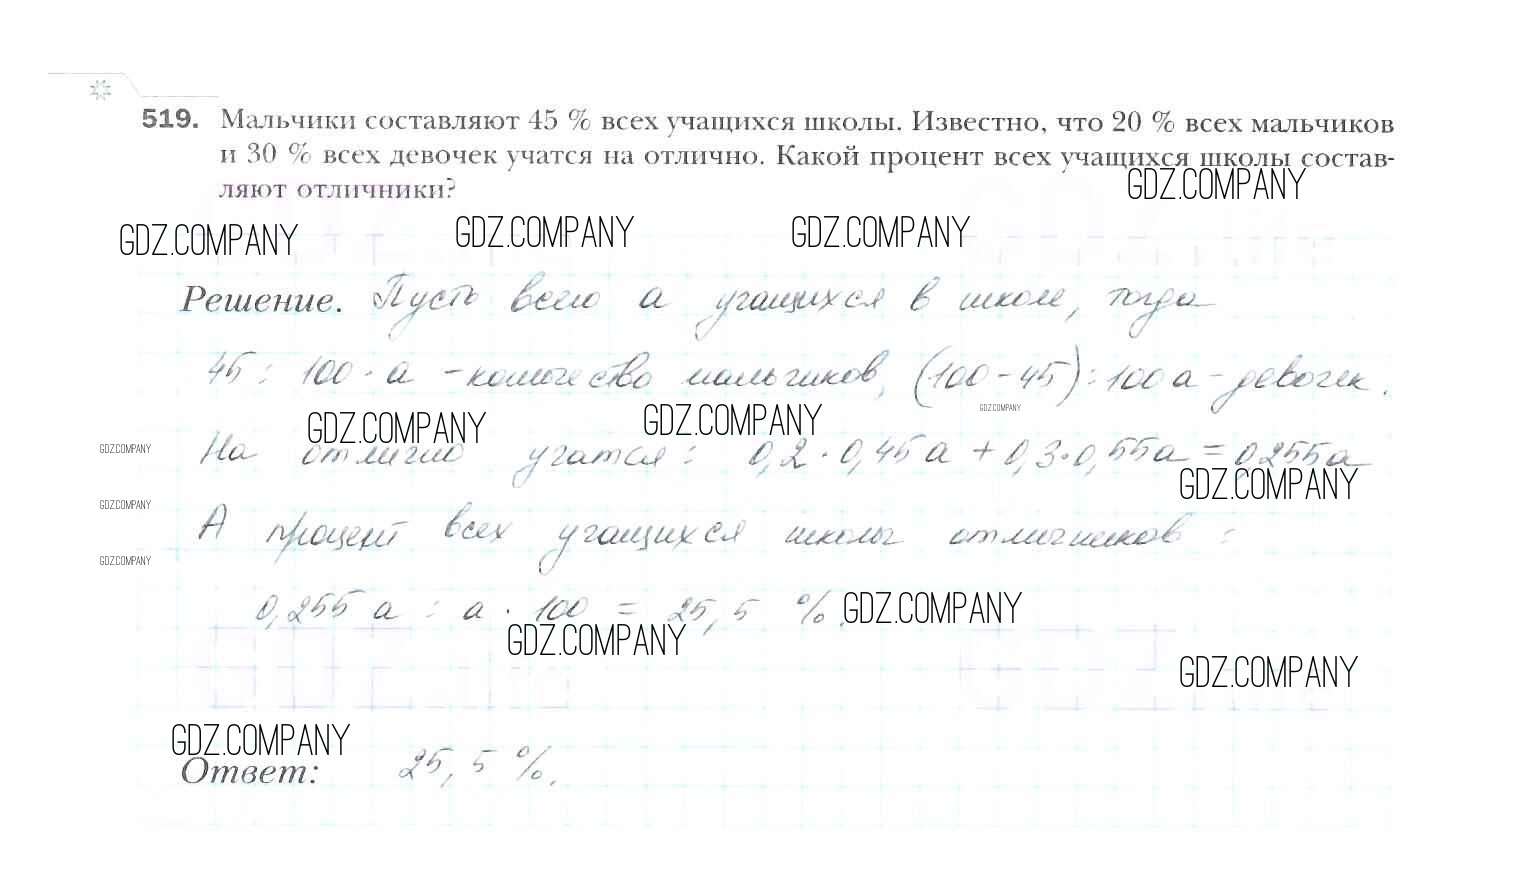 519. Мальчики составляют 45 % всех учащихся школы. Известно, что 20 % всех мальчиков
и 30 % всех девочек учатся на отлично. Какой процент всех учащихся школы состав-
ляют отличники?
GDZ.COMPANY
GDZ.COMPANY GDZ.COMPANY GDZ.COMPANY
Решение. Пусть всего а учащихся в школе, тогда
45 : 100 · а – количество мальчиков, (100 – 45) : 100 а – девочек.
GDZ.COMPANY
GDZ.COMPANY GDZ.COMPANY
GDZ.COMPANY
На отлично учатся : 0,2 · 0,45 а + 0,3 · 0,55 а = 0,255 а
GDZ.COMPANY
GDZ.COMPANY
А процент всех учащихся школы отличников :
GDZ.COMPANY
0,255 а : а · 100 = 25,5 %.
GDZ.COMPANY
GDZ.COMPANY
GDZ.COMPANY
GDZ.COMPANY
Ответ: 25,5 %.